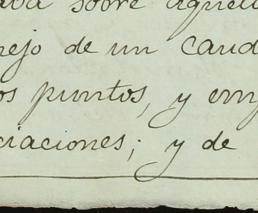 aba sobre aquell
nejo de un caud
os puntos, y emp
ciaciones; y de